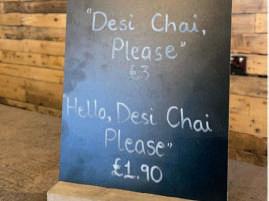 "Desi Chai,
Please"
£3
Hello, Desi Chai
Please"
£1.90